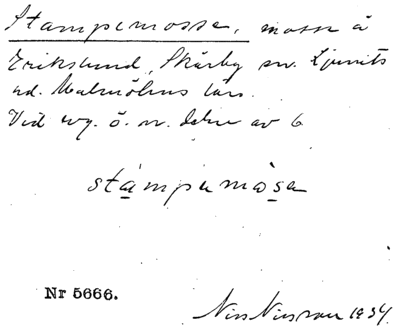 Stampemosse, mosse å
Erikslund, Skårby sn. Ljunits
hd. Malmöhus län.
Vid vg. ö. n. delen av 6
stampemåsa
Nr 5666.
Nils Nilsson 1934.